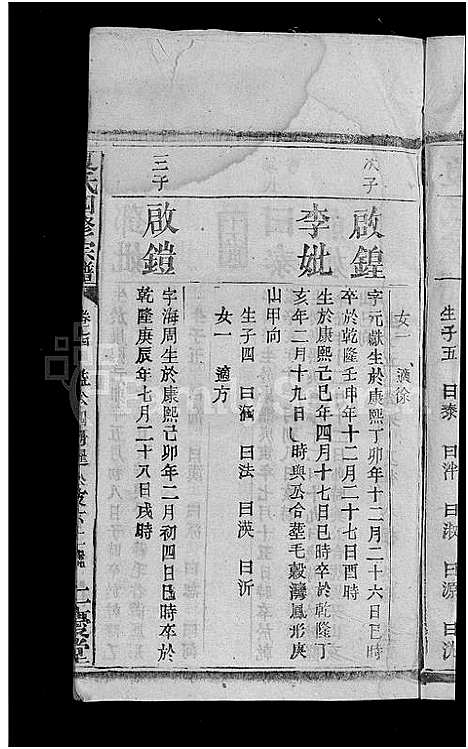 生子五 曰泰 曰泮 曰淑 曰源
女一 適徐
次子
啟鍠
字元獻生於康熙丁卯年十二月二十六日巳時
卒於乾隆壬申年十二月二十七日酉時
李妣
生於康熙己巳年四月十七日巳時卒於乾隆丁
亥年二月十九日 時與公合塟毛穀灣鳳形庚
山甲向
生子四 曰 曰法 曰渶 曰沂
女一 適方
三子
啟鎧
字海周生於康熙己卯年二月初四日巳時卒於
乾隆庚辰年七月二十八日戌時
夏氏四修宗譜